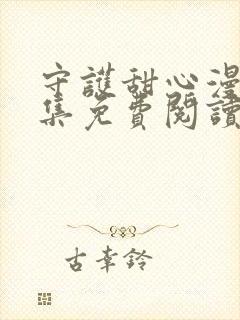 守護甜心漫
集免費閱讀
古幸鈴